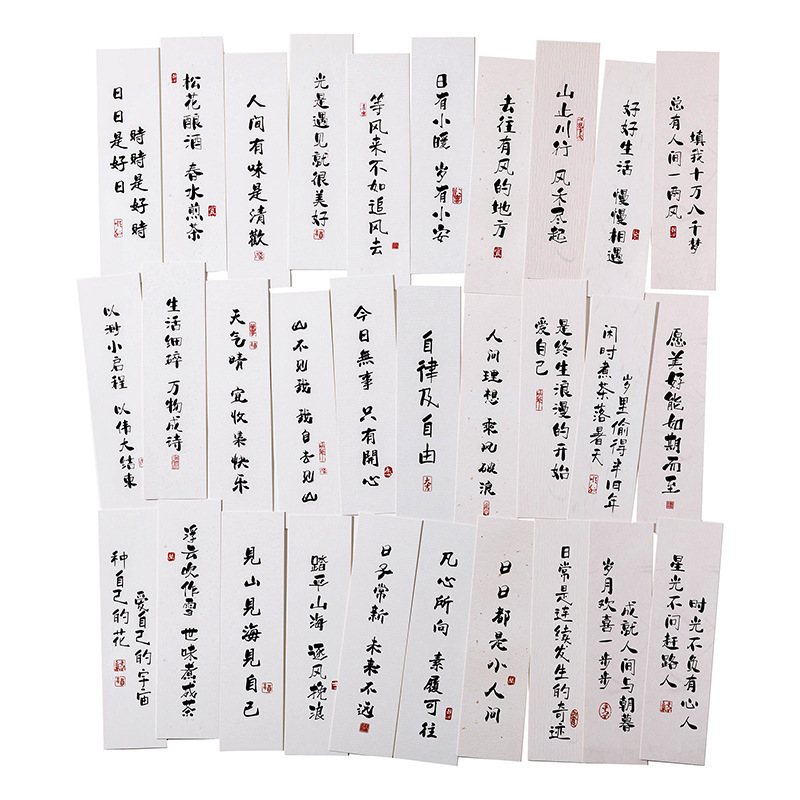 日日是好日
時時是好時
松花酿酒 春水煎茶
人间有味是清歡
光是遇见就很美好
等风来不如追风去
日有小暖 岁有小安
去往有风的地方
山止川行 风禾尽起
好好生活 慢慢相遇
总有人间一两风
填我十万八千梦
以渺小启程 以伟大结束
生活细碎 万物成诗
天气晴 宜收集快乐
山不见我 我自去见山
今日無事 只有開心
自律及自由
人间理想 乘风破浪
爱自己
是终生浪漫的开始
闲时煮茶落暑天
岁里偷得半旧年
愿美好能如期而至
种自己的花
爱自己的宇宙
浮云吹作雪 世味煮成茶
見山見海見自己
踏平山海 逐风挽浪
日子常新 未来不远
凡心所向 素履可往
日日都是小人间
日常是连续发生的奇迹
岁月欢喜一步步
成就人间与朝暮
星光不问赶路人
时光不负有心人